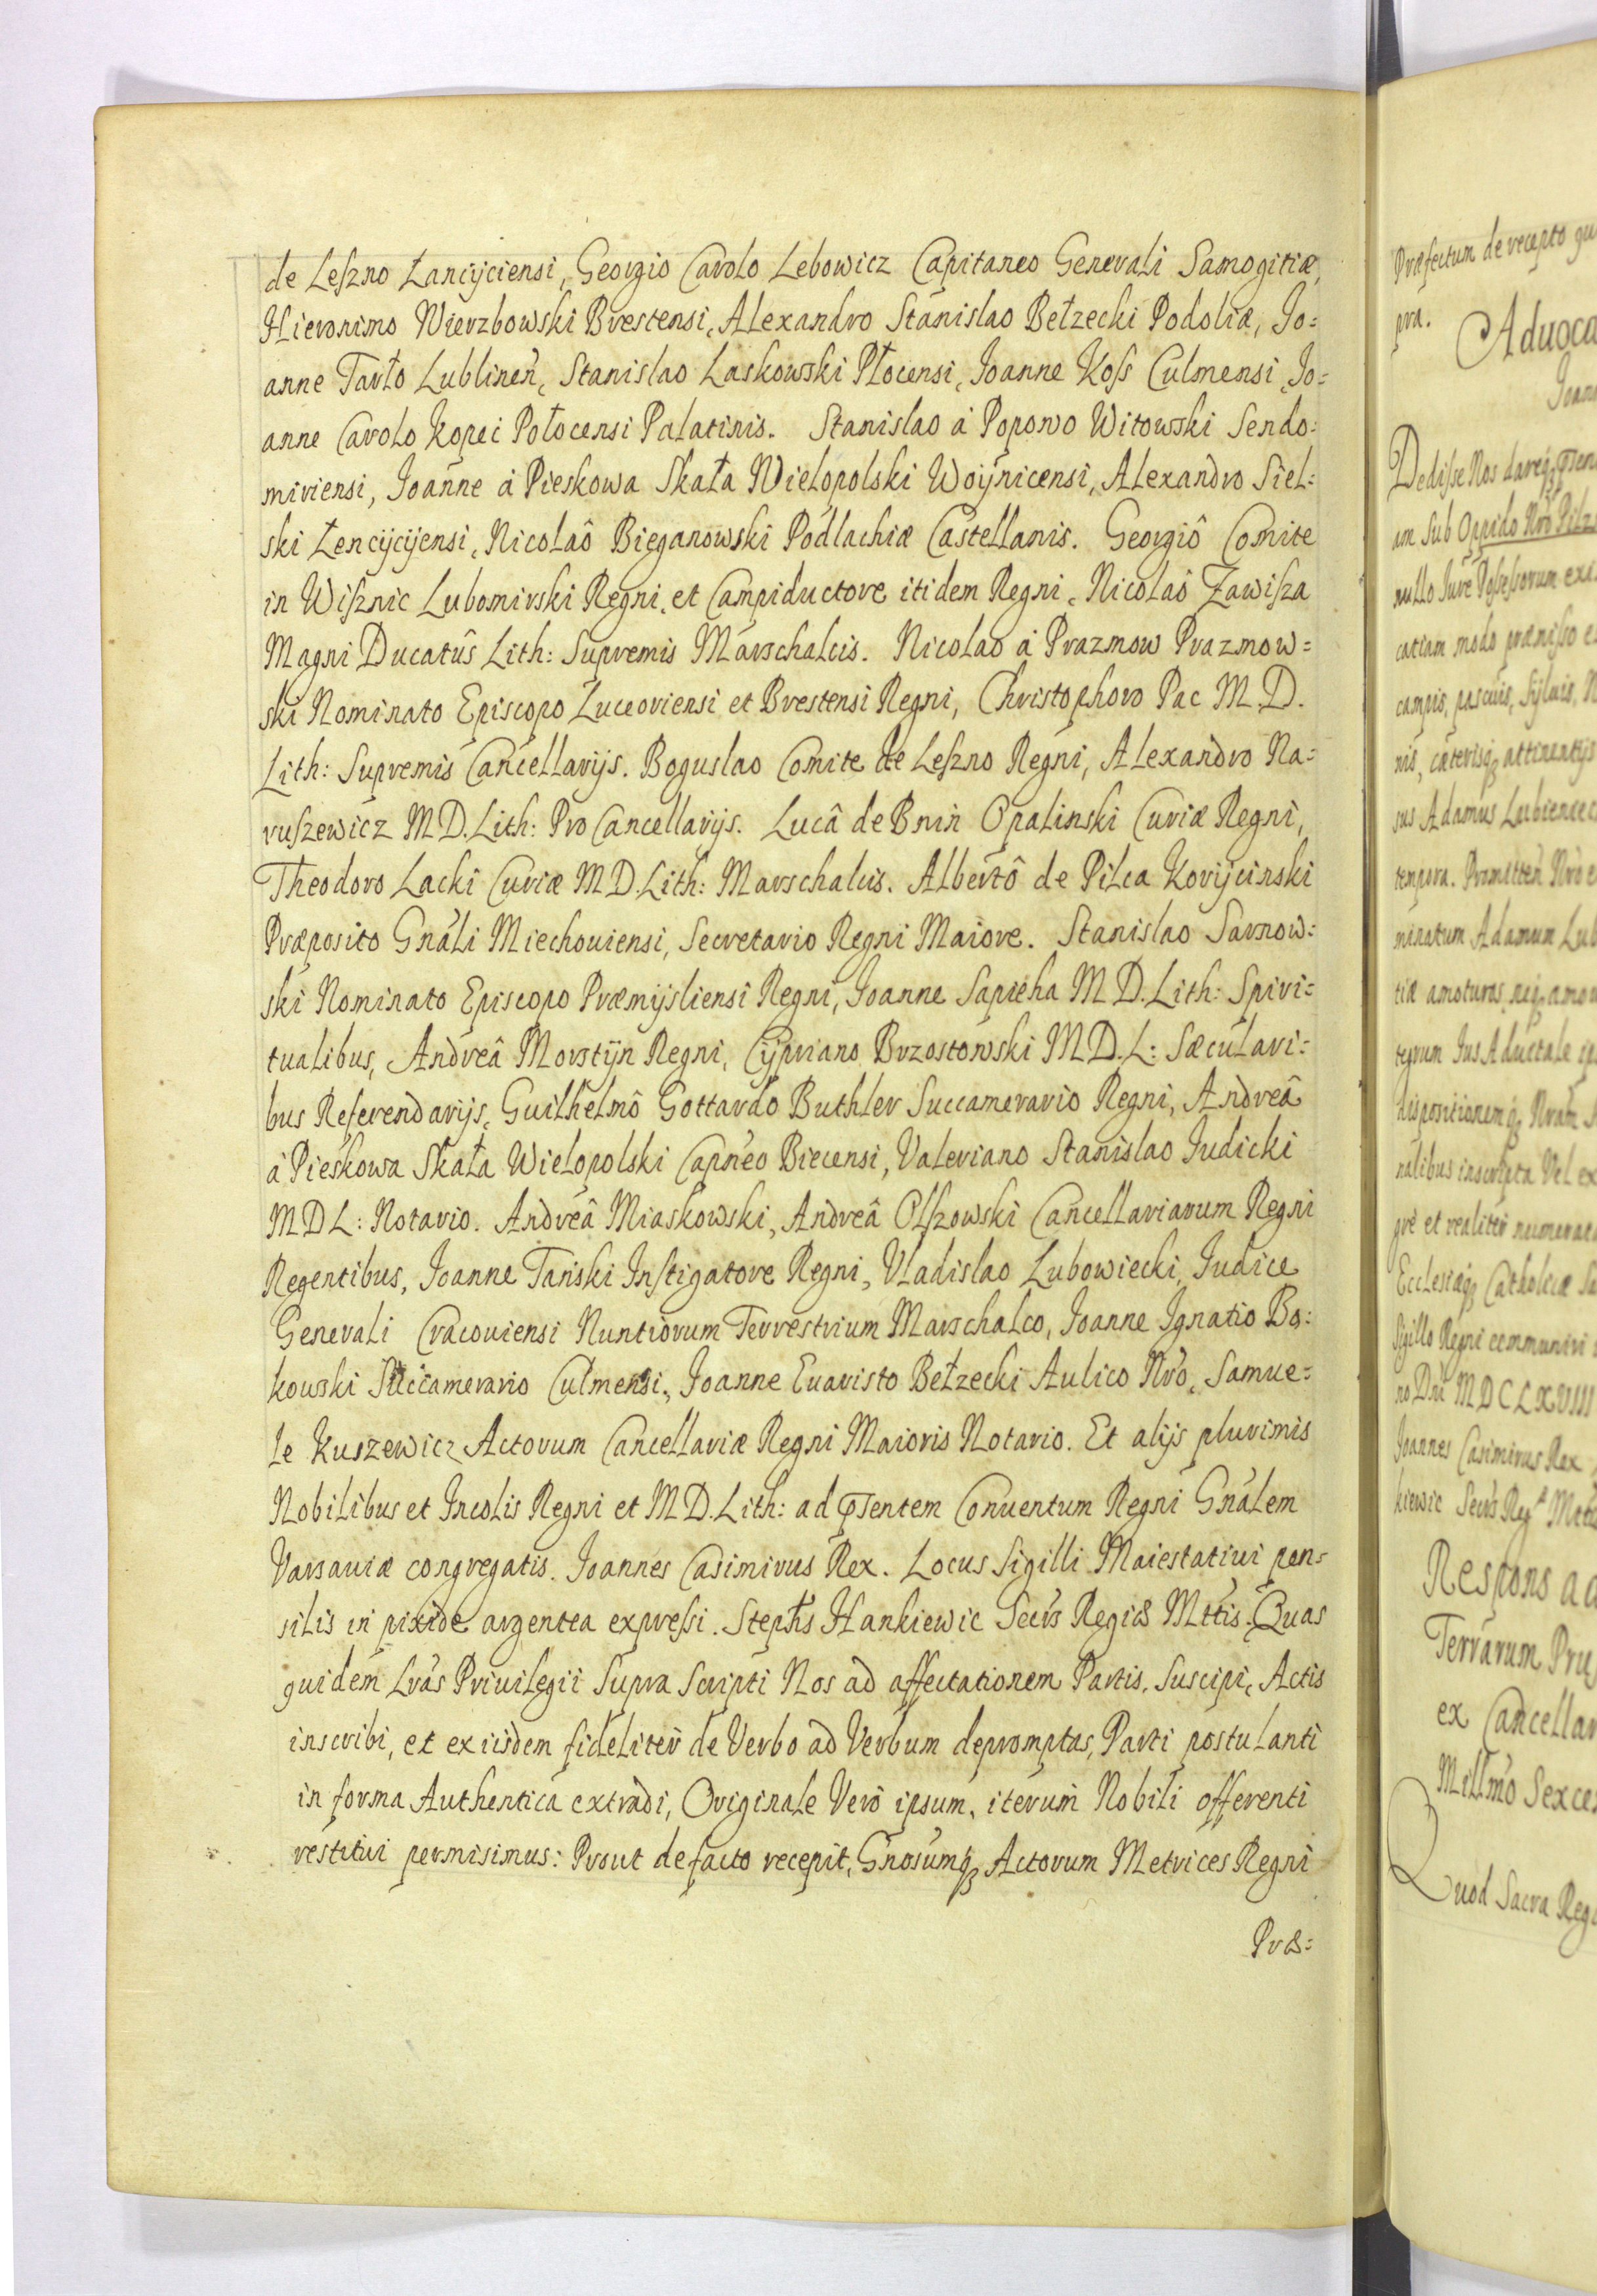 de Leszno Łancijciensi, Georgio Carolo Lebowicz Capitaneo Generali Samogitiæ,
Hieronimo Wierzbowski Brestensi, Alexandro Stanislao Bełzecki Podoliæ, Jo=
anne Tarło Lublineñ, Stanislao Laskowski Płocensi, Joanne Koss Culmensi, Jo=
anne Carolo Kopeć Połocensi Palatinis. Stanislao à Popowo Witowski Sendo=
miriensi, Joanne à Pieskowa Skała Wielopolski Woijnicensi, Alexandro Siel=
ski Łencijcijensi, Nicolaô Bieganowski Podlachiæ Castellanis. Georgiô Comite
in Wisznic Lubomirski Regni, et Campiductore itidem Regni, Nicolaô Zawisza
Magni Ducatûs Lith: Supremis Marschalcis. Nicolao à Prazmow Prazmow=
ski Nominato Episcopo Luceoriensi et Brestensi Regni, Christophoro Pac M.D.
Lith: Supremis Cancellarijs. Boguslao Comite de Leszno Regni, Alexandro Na=
ruszewicz M.D. Lith: Pro Cancellarijs. Lucâ de Bnin Opalinski Curiæ Regni,
Theodoro Lacki Curiæ M.D. Lith: Marschalcis. Albertô de Pilca Korijcinski
Præposito Gnáli Miechouiensi, Secretario Regni Maiore. Stanislao Sarnow=
ski Nominato Episcopo Præmijsliensi Regni, Joanne Sapieha M.D. Lith: Spiri=
tualibus, Andreâ Morstijn Regni, Cijpriano Brzostowski M.D.L: Sæculari=
bus Referendarijs, Guilhelmô Gottardo Buthler Succamerario Regni, Andreâ
à Pieskowa Skała Wielopolski Capnéo Biecensi, Valeriano Stanislao Judicki
M D L: Notario. Andreâ Miaskowski, Andreâ Olszowski Cancellariarum Regni
Regentibus, Joanne Tański Instigatore Regni, Vladislao Lubowiecki, Judice
Generali Cracouiensi Nuntiorum Terrestrium Marschalco, Joanne Ignatio Bą=
kowski Succamerario Culmensi, Joanne Euaristo Bełzecki Aulico Nrô, Samue=
le Kuszewicz Actorum Cancellariæ Regni Maioris Notario. Et alijs plurimis
Nobilibus et Incolis Regni et M.D. Lith: ad pñsentem Conuentum Regni Gnálem
Varsauiæ congregatis. Joannes Casimirus Rex. Locus Sigilli Maiestatiui pen=
silis in pixide argentea expressi. Stephs Hankiewic Secrs Regiæ Mttis. Quas
quidem Lrás Priuilegii Supra Scripti Nos ad affectationem Partis, Suscipi, Actis
inscribi, et ex iisdem fideliter de Verbo ad Verbum depromptas, Parti postulanti
in forma Authentica extradi, Originale Verò ipsum, iterum Nobili offerenti
restitui permisimus: Prout de facto recepit, Gnosumq; Actorum Metrices Regni
Præ=
Præfectum de recepto qu
pra.
Aduoca
Joan
Dedisse Nos dareq;
am Sub Oppido Nrô Pilz
nullo Jure Possessorum exi
catiam modo præmisso e
campis, pascuis, Sijluis,
nis, cæterisq; attinentijs
sus Adamus Lubieniec
tempora. Promitteñ Nrô e
minatum Adamum Lub
tiæ amoturos neq; amou
tegrum Jus Aduc̃ale ip
dispositionemq; Nram
nalibus inscripta Vel ex
grè et realiter numerat
Ecclesiæq; Catholicæ Sa
Sigillo Regni communiri
no Dni MDCLXVIII
Joannes Casimirus Rex
kiewic Secrs
Respons ad
Terrarum Prus
ex Cancellar
Millmo Sexce
Quod Sacra Regi